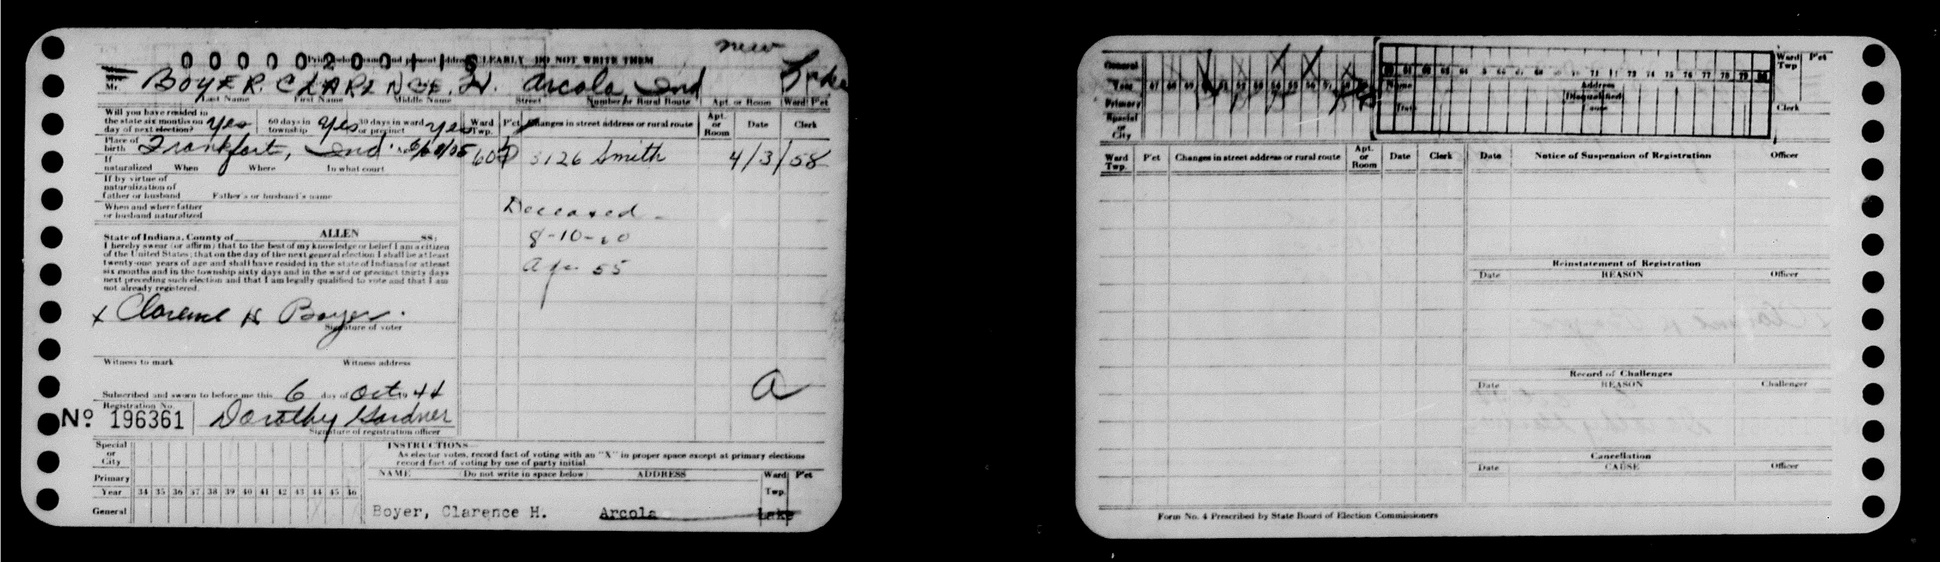 new
00000200115
CLEARLY DO NOT WRITE THEM
Mr. BOYER. CLARENCE. H. Arcola Ind Lake
Last Name First Name Middle Name Street Number or Rural Route Apt. or Room Ward P'ct
Will you have resided in the state six months on day of next election? yes 60 days in township yes 30 days in ward or precinct yes Ward Twp. P'ct Changes in street address or rural route Apt. or Room Date Clerk
Place of birth Frankfort, Ind. 607 3126 Smith 4/3/58
If naturalized When Where In what court
If by virtue of naturalization of father or husband Father's or husband's name
When and where father or husband naturalized
Deceased
8-10-60
Age 55
State of Indiana, County of ALLEN SS:
I hereby swear (or affirm) that to the best of my knowledge or belief I am a citizen
of the United States; that on the day of the next general election I shall be at least
twenty-one years of age and shall have resided in the state of Indiana for at least
six months and in the township sixty days and in the ward or precinct thirty days
next preceding such election and that I am legally qualified to vote and that I am
not already registered.
x Clarence H. Boyer.
Signature of voter
Witness to mark Witness address
a
Subscribed and sworn to before me this 6 day of Oct 1944
Registration No.
No 196361 Dorothy Gardner
Signature of registration officer
Special or City
Primary
Year 34 35 36 37 38 39 40 41 42 43 44 45 46
General
INSTRUCTIONS
As elector votes, record fact of voting with an "X" in proper space except at primary elections
record fact of voting by use of party initial.
NAME Do not write in space below ADDRESS Ward Twp. P'ct
Boyer, Clarence H. Arcola Lake
General
Year 47 48 49 51 52 53 54 55 56 57
Primary
Special or City
61 62 63 64 65 66 67 68 69 70 71 72 73 74 75 76 77 78 79 80
Name Address
Disqualified
Date Cause
Ward Twp P'ct
Clerk
Ward Twp. P'ct Changes in street address or rural route Apt. or Room Date Clerk Date Notice of Suspension of Registration Officer
Reinstatement of Registration
Date REASON Officer
Record of Challenges
Date REASON Challenger
Cancellation
Date CAUSE Officer
Form No. 4 Prescribed by State Board of Election Commissioners